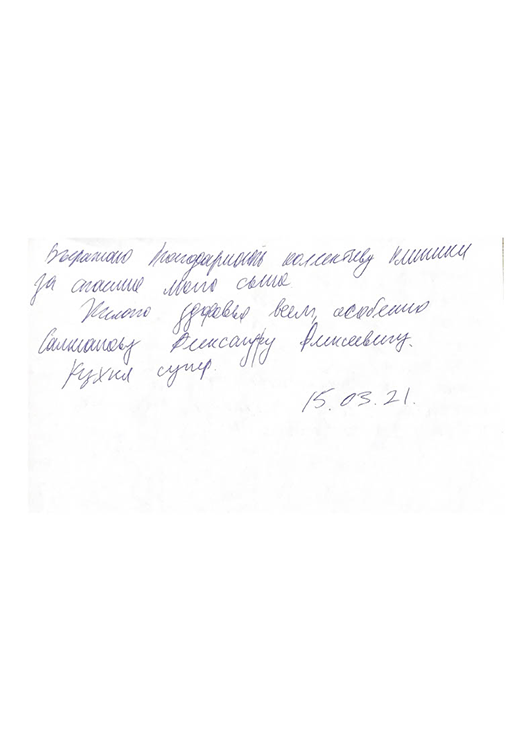 Выражаю благодарность коллективу клиники
за спасение моего сына
Желаю здоровья всем, особенно
Александру Алексеевичу.
Кухня супер.
15.03.21.